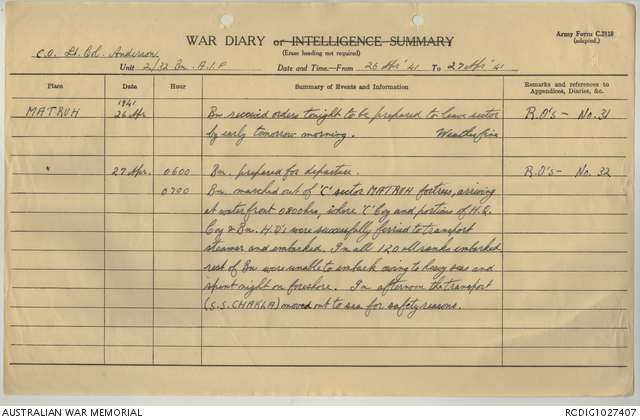 WAR DIARY or INTELLIGENCE SUMMARY
(Erase heading not required)
Army Form C.2118
(adapted.)
C.O. Lt. Col. Anderson
Unit 2/32 Bn. A.I.F Date and Time—From 26 Apr '41 To 27 Apr '41
Place Date Hour Summary of Events and Information Remarks and references to
Appendices, Diaries, &c.
1941
MATRUH 26 Apr Bn received orders tonight to be prepared to leave sector R.O's - No. 31
by early tomorrow morning. Weather fine
" 27 Apr. 0600 Bn. prepared for departure. R.O's - No. 32
0700 Bn. marched out of "C" sector MATRUH fortress, arriving
at waterfront 0800hrs, where "C" Coy and portions of H.Q.
Coy & Bn. H.Q's were successfully ferried to transport
steamer and embarked. In all 120 all ranks embarked
rest of Bn were unable to embark owing to heavy seas and
spent night on foreshore. In afternoon the transport
(S.S. CHAKLA) moved out to sea for safety reasons.
AUSTRALIAN WAR MEMORIAL RCDIG1027407